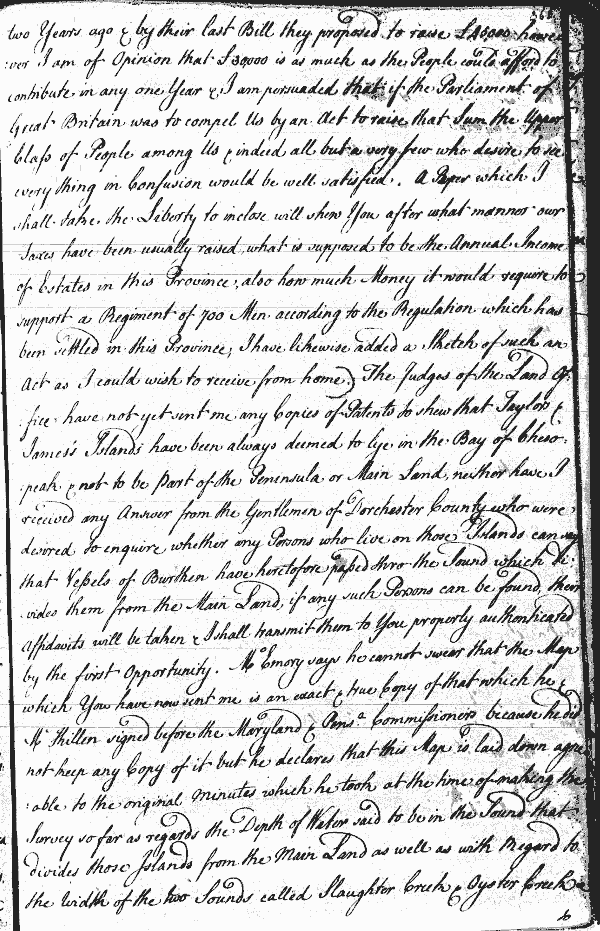 two Years ago & by their last Bill they proposed to raise £45000 howe-
:ver I am of Opinion that £30000 is as much as the People could afford to
contribute in any one Year & I am persuaded that if the Parliament of
Great Britain was to compel Us by an Act to raise that Sum the Upper
Class of People among Us & indeed all but a very few who desire to see
every thing in Confusion would be well satisfied. A Paper which I
shall take the Liberty to inclose will shew You after what mannor our
Taxes have been usually raised, what is supposed to be the Annual Income
of Estates in this Province; also how much Money it would require to
support a Regiment of 700 Men according to the Regulation which has
been settled in this Province; I have likewise added a Sketch of such an
Act as I could wish to receive from home. The Judges of the Land Of-
fice have not yet sent me any Copies of Patents to shew that Taylors &
James's Islands have been always deemed to lye in the Bay of Chesa-
:peak & not to be part of the Peninsula or Main Land, neither have I
received any Answer from the Gentlemen of Dorchester County who were
desired to enquire whether any Persons who live on those Islands can say
that Vessels of Burthen have heretofore passed thro the Sound which di-
:vides them from the Main Land, if any such Persons can be found, their
Affidavits will be taken & I shall transmit them to You properly authenticated
by the first Opportunity. Mr Emory says he cannot swear that the Map
which You have now sent me is an exact & true Copy of that which he &
Mr Killen signed before the Maryland & Pensa. Commissioners because he did
not keep any Copy of it but he declares that this Map is laid down agre-
:able to the original Minutes which he took at the time of making the
Survey so far as regards the Depth of Water said to be in the Sound that
divides those Islands from the Main Land as well as with Regard to
the Width of the two Sounds called Slaughter Creek & Oyster Creek